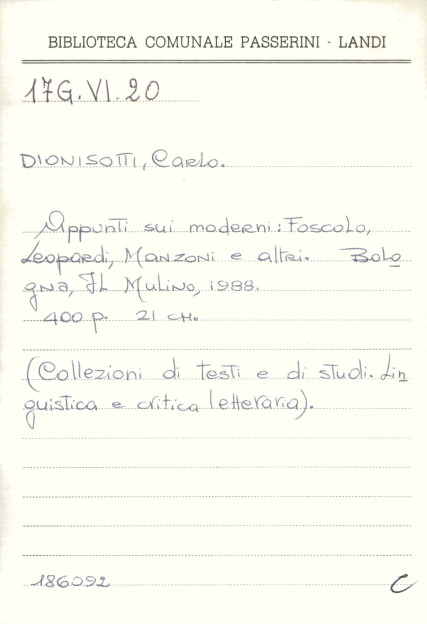 BIBLIOTECA COMUNALE PASSERINI - LANDI
17G.VI.20
DIONISOTTI, Carlo.
Appunti sui moderni: Foscolo,
Leopardi, Manzoni e altri. Bolo
gna, Il Mulino, 1988.
400 p. 21 cm.
(Collezioni di testi e di studi. Lin
guistica e critica letteraria).
186092 C